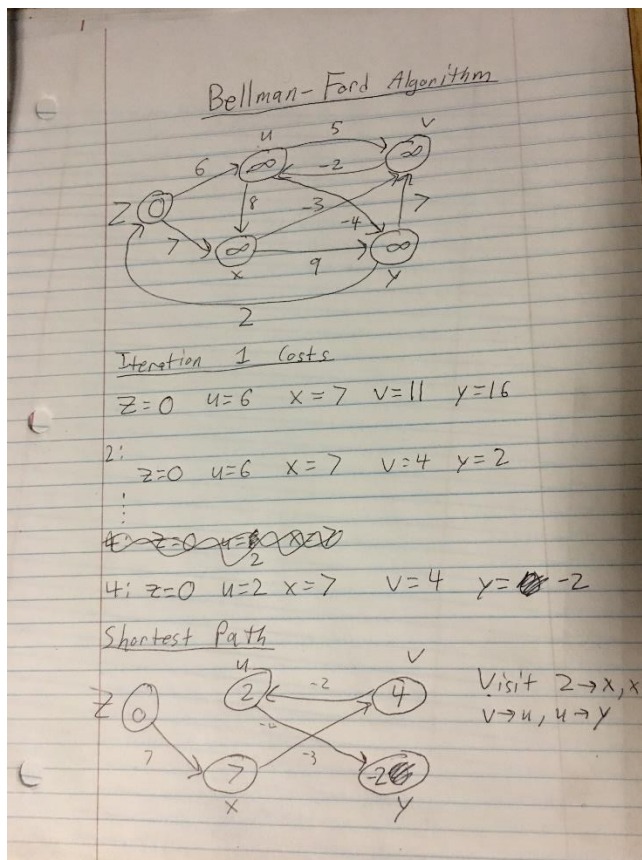 1
Bellman-Ford Algorithm
u 5 v
6 ∞ -2 ∞
Z 0 8 -3 -4 7
7 ∞ 9 ∞
x y
2
Iteration 1 Costs
Z=0 u=6 x=7 v=11 y=16
2:
z=0 u=6 x=7 v=4 y=2
4: z=0 u=2 x=7 v=4 y= -2
Shortest Path
u v
Z 0 2 -2 4 Visit 2→x, x
v→u, u→y
7 7 -3 -2
x y